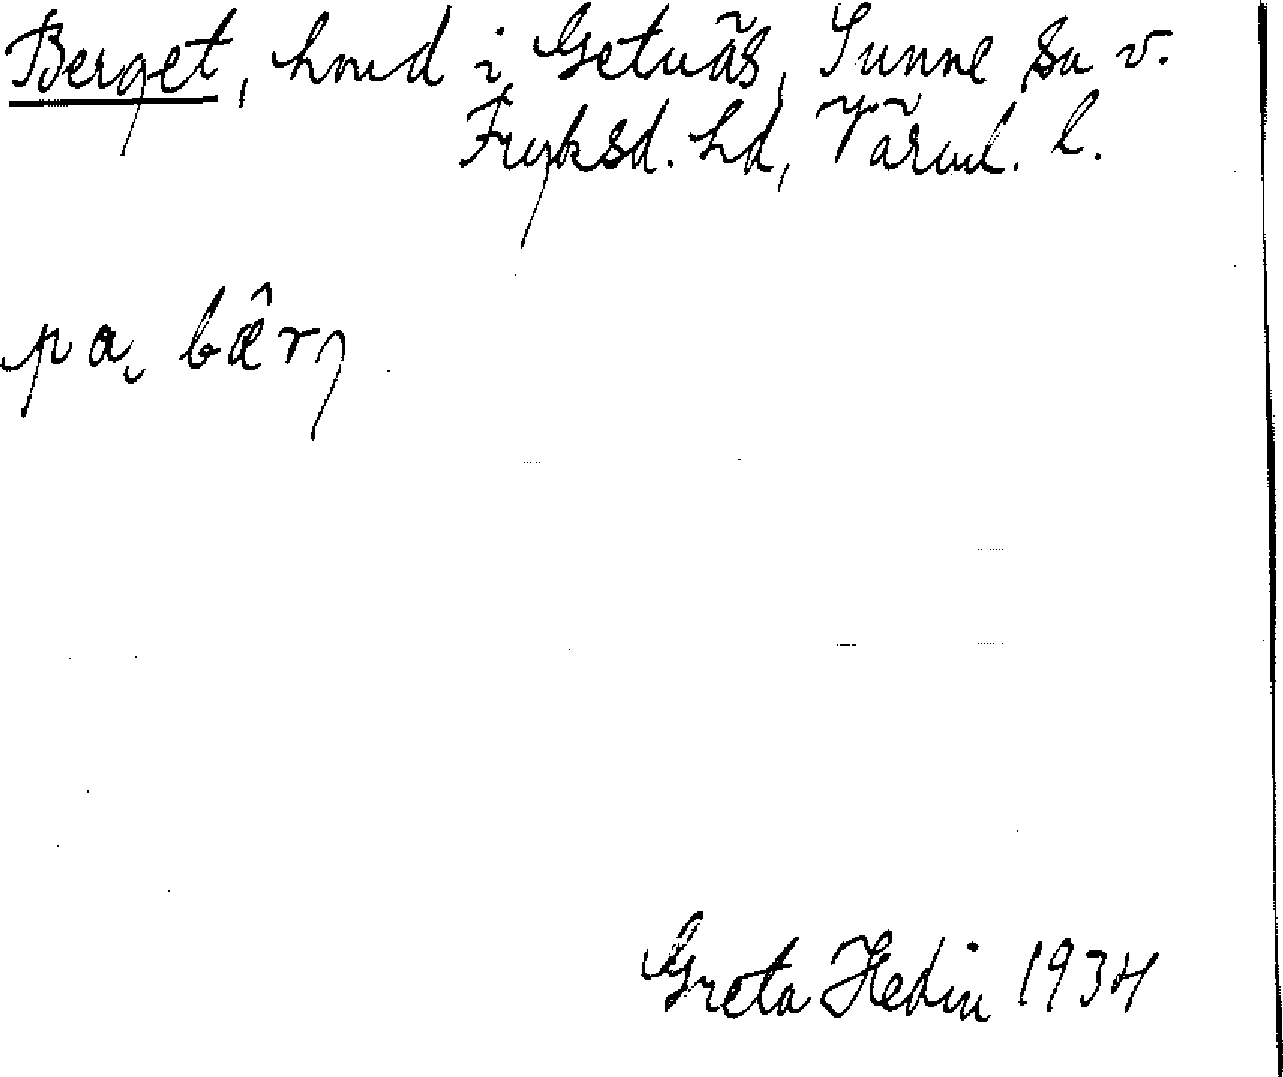 Berget, hmd i Getnäs, Sunne sn v.
Fryksd. hd, Värml. l.
på bær
Greta Hedin 1934